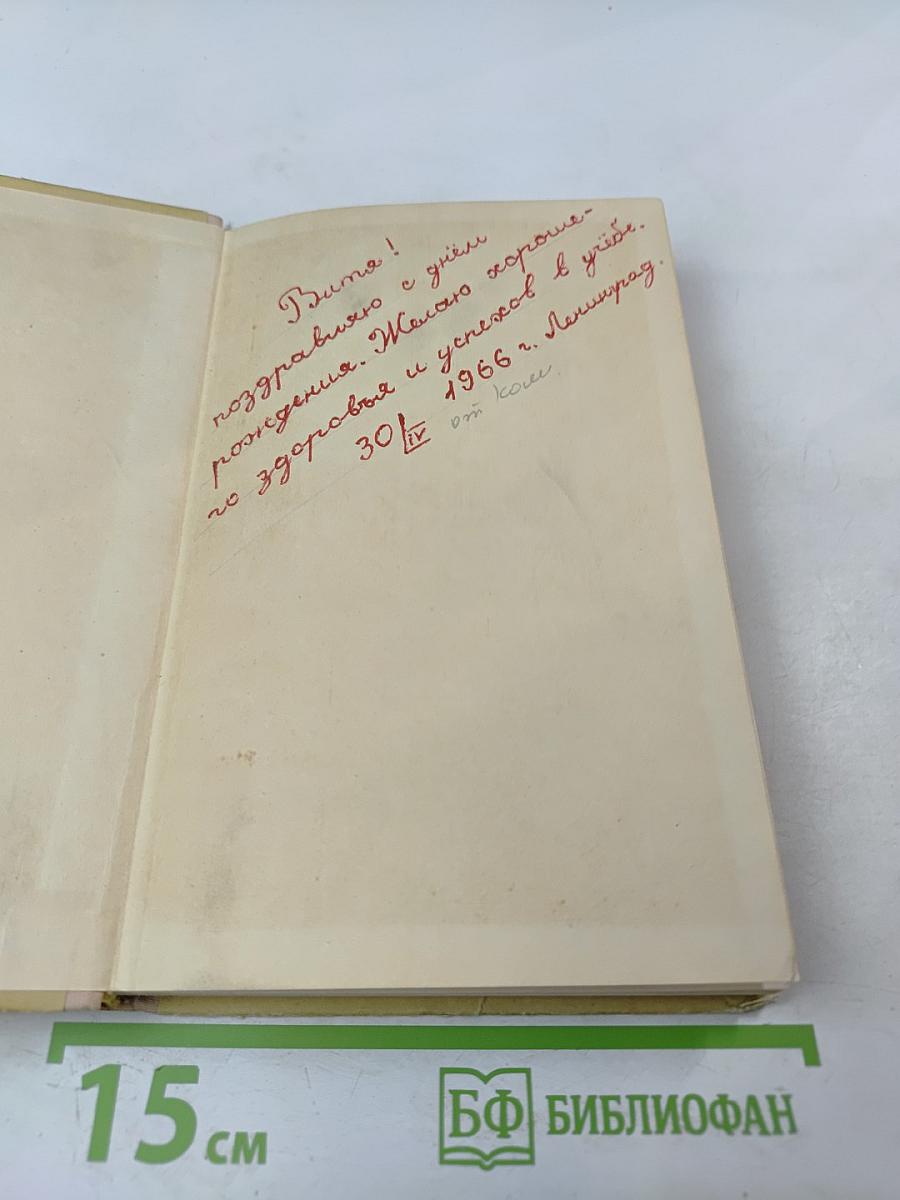 Витя!
поздравляю с днём
рождения. Желаю хороше-
го здоровья и успехов в учёбе.
30/IV 1966 г. Ленинград.
от ком.
15 см
БФ БИБЛИОФАН